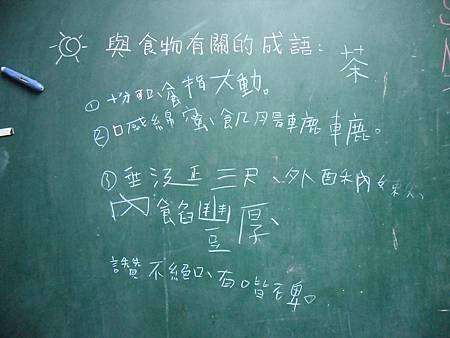 與食物有關的成語：茶
① 食指大動。
② 口感綿蜜、飢腸轆轆。
③ 垂涎三尺、外酥內
內餡豐厚、
讚不絕口、有口皆碑。...